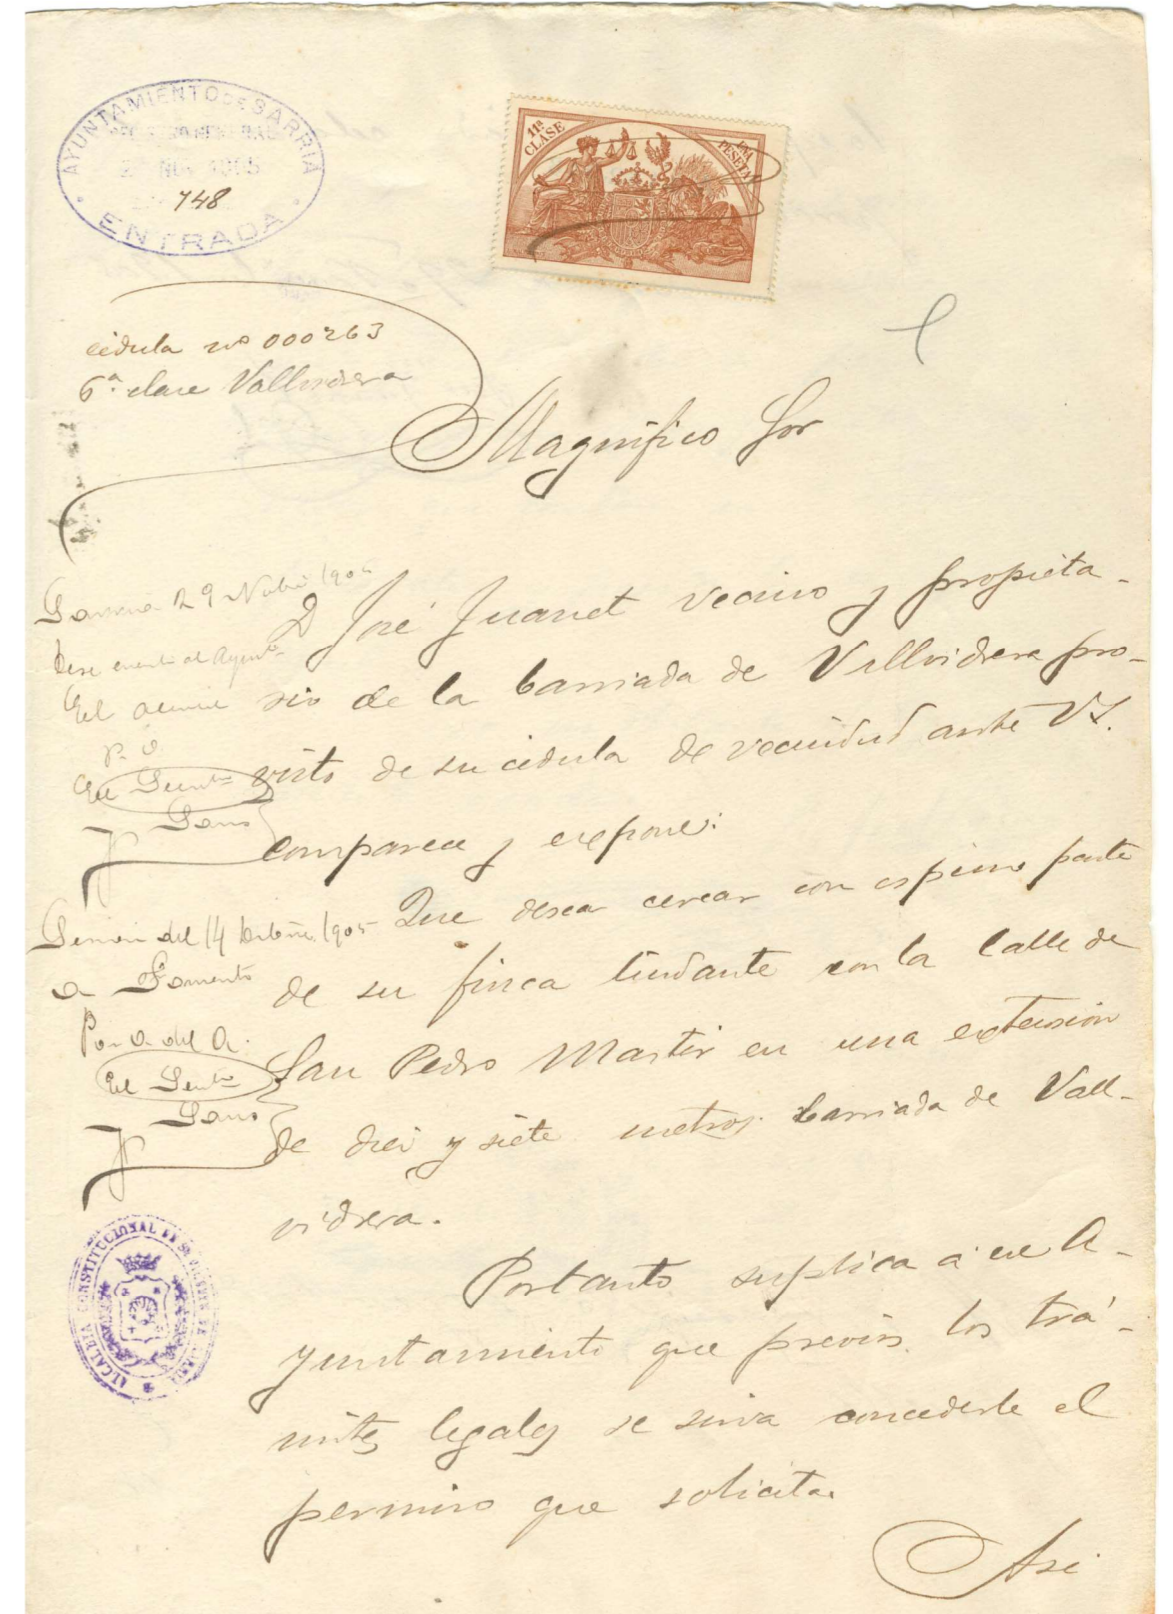 AYUNTAMIENTO DE SARRIÁ
REGISTRO GENERAL
NOV 1905
748
ENTRADA
11ª CLASE
UNA PESETA
cédula nº 000263
6ª clase Vallvidrera
Magnífico Sor
Sarriá 29 Nobre 1905
Dese cuenta al Ayunto
El Alcalde
P. O.
El Sectº
Sans
D José Juanet vecino y propieta-
rio de la barriada de Vallvidrera pro-
visto de su cédula de vecindad ante VS.
comparece y expone:
Sesión del 14 Dicbre. 1905
a Fomento
P. A. del A.
El Sectº
Sans
Que desea cercar con espino parte
de su finca lindante con la calle de
San Pedro Martir en una extensión
de diez y siete metros barriada de Vall-
vidrera.
Portanto suplica á ese A-
yuntamiento que previos los trá-
mites legales se sirva concederle el
permiso que solicita
Asi
ALCALDIA CONSTITUCIONAL DE Sn VICENTE DE SARRIÁ